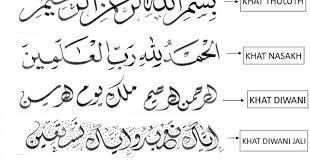 بِسْمِ اللهِ الرَّحْمٰنِ الرَّحِيْمِ KHAT THULUTH
الْحَمْدُ لِلّٰهِ رَبِّ الْعَالَمِينَ KHAT NASAKH
الرحمن الرحيم ملك يوم الدين KHAT DIWANI
اياك نعبد واياك نستعين KHAT DIWANI JALI